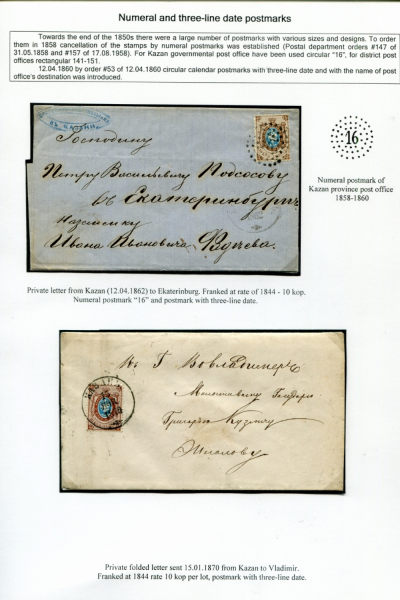 Numeral and three-line date postmarks
Towards the end of the 1850s there were a large number of postmarks with various sizes and designs. To order
them in 1858 cancellation of the stamps by numeral postmarks was established (Postal department orders #147 of
31.05.1858 and #157 of 17.08.1958). For Kazan governmental post office have been used circular "16", for district post
offices rectangular 141-151.
12.04.1860 by order #53 of 12.04.1860 circular calendar postmarks with three-line date and with the name of post
office's destination was introduced.
Господину
Петру Васильевичу Подсосову
въ Екатеринбургъ
Ивана Ивановича
16
Numeral postmark of
Kazan province post office
1858-1860
Private letter from Kazan (12.04.1862) to Ekaterinburg. Franked at rate of 1844 - 10 kop.
Numeral postmark "16" and postmark with three-line date.
Private folded letter sent 15.01.1870 from Kazan to Vladimir.
Franked at 1844 rate 10 kop per lot, postmark with three-line date.